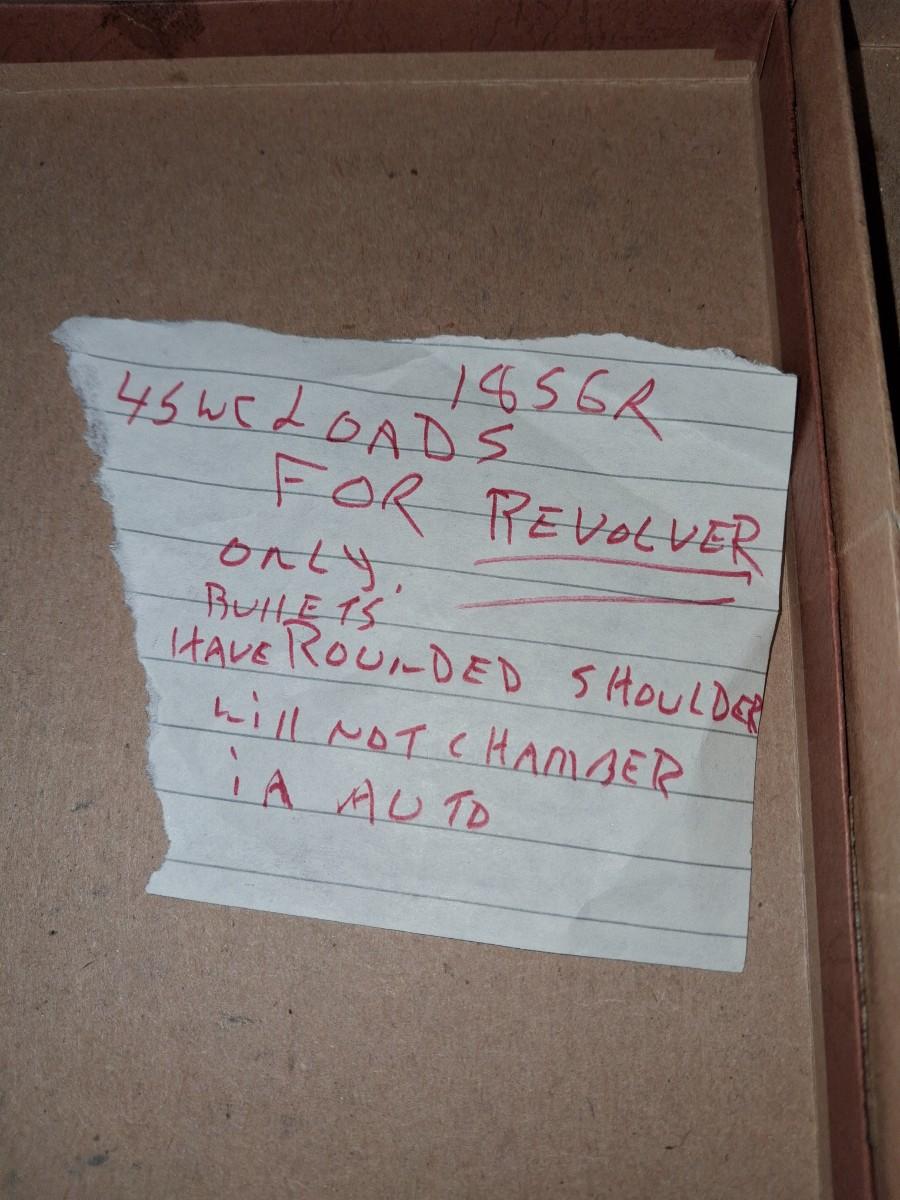 185GR
45WC LOADS
FOR REVOLVER
ONLY.
BULLETS
HAVE ROUNDED SHOULDER
Will NOT CHAMBER
iN AUTO